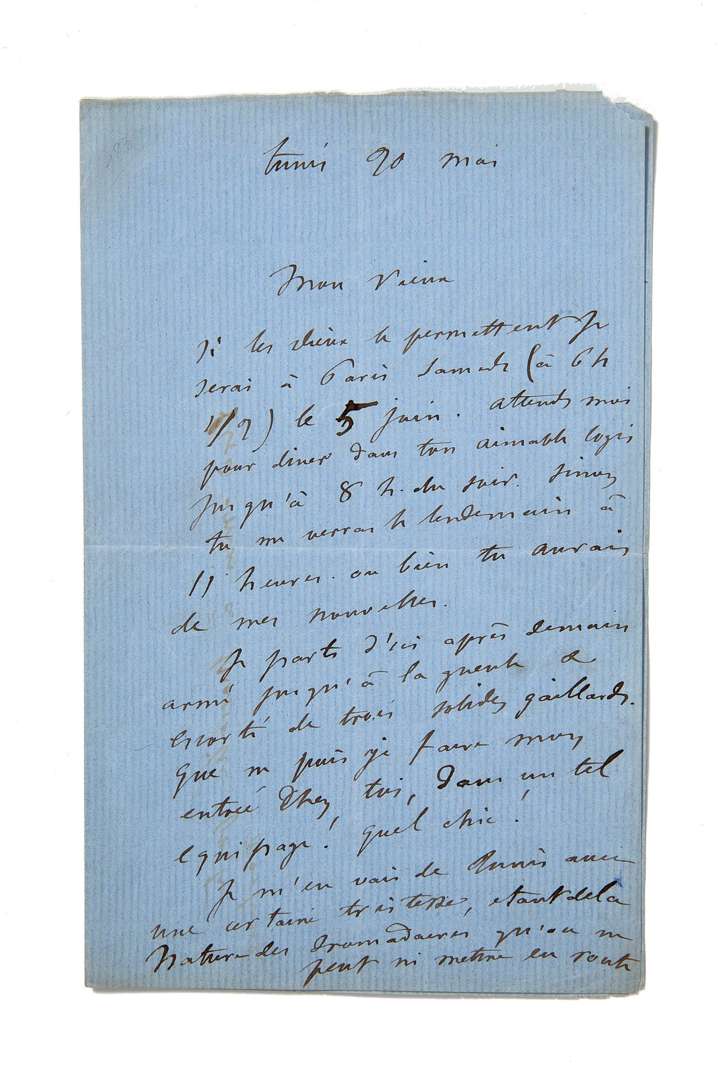 tunis 20 mai
Mon Vieux
Si les dieux le permettent je
serai à Paris Samedi (à 6 h
1/2) le 5 juin. attends moi
pour diner dans ton aimable logis
jusqu'à 8 h. du soir. Sinon
tu me verras le lendemain à
11 heures. ou bien tu aurais
de mes nouvelles.
Je parts d'ici après demain
armé jusqu'à la gueule &
escorté de trois solides gaillards.
que ne puis-je faire mon
entrée chez toi, dans un tel
equipage! quel chic!
Je m'en vais de Tunis avec
une certaine tristesse, etant de la
Nature des dromadaires qu'on ne
peut ni mettre en route